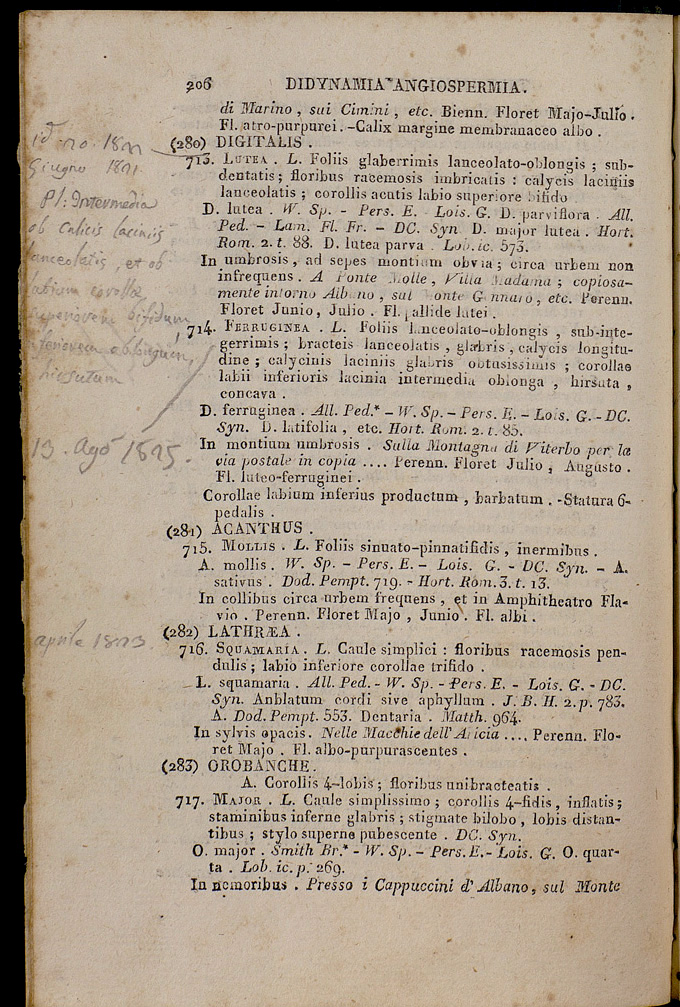 206 DIDYNAMIA ANGIOSPERMIA.
di Marino, sui Cimini, etc. Bienn. Floret Majo-Julio.
Fl. atro-purpurei. -Calix margine membranaceo albo.
(280) DIGITALIS.
713. LUTEA. L. Foliis glaberrimis lanceolato-oblongis; sub-
dentatis; floribus racemosis imbricatis: calycis laciniis
lanceolatis; corollis acutis labio superiore bifido
D. lutea. W. Sp. - Pers. E. Lois. G. D. parviflora. All.
Ped. - Lam. Fl. Fr. - DC. Syn D. major lutea. Hort.
Rom. 2. t. 88. D. lutea parva. Lob. ic. 573.
In umbrosis, ad sepes montium obvia; circa urbem non
infrequens. A Ponte Molle, Villa Madama; copiosa-
mente intorno Albano, sul Monte Gennaro, etc. Perenn.
Floret Junio, Julio. Fl. pallide lutei.
714. FERRUGINEA. L. Foliis lanceolato-oblongis, sub-inte-
gerrimis; bracteis lanceolatis, glabris, calycis longitu-
dine; calycinis laciniis glabris obtusissimis; corollae
labii inferioris lacinia intermedia oblonga, hirsuta,
concava.
D. ferruginea. All. Ped.* - W. Sp. - Pers. E. - Lois. G. - DC.
Syn. D. latifolia, etc. Hort. Rom. 2. t. 85.
In montium umbrosis. Sulla Montagna di Viterbo per la
via postale in copia .... Perenn. Floret Julio, Augusto.
Fl. luteo-ferruginei.
Corollae labium inferius productum, barbatum. -Statura 6-
pedalis.
(281) ACANTHUS.
715. MOLLIS. L. Foliis sinuato-pinnatifidis, inermibus.
A. mollis. W. Sp. - Pers. E. - Lois. G. - DC. Syn. - A.
sativus. Dod. Pempt. 719. - Hort. Rom. 3. t. 13.
In collibus circa urbem frequens, et in Amphitheatro Fla-
vio. Perenn. Floret Majo, Junio. Fl. albi.
(282) LATHRÆA.
716. SQUAMARIA. L. Caule simplici: floribus racemosis pen-
dulis; labio inferiore corollae trifido.
L. squamaria. All. Ped. - W. Sp. - Pers. E. - Lois. G. - DC.
Syn. Anblatum cordi sive aphyllum. J. B. H. 2. p. 783.
A. Dod. Pempt. 553. Dentaria. Matth. 964.
In sylvis opacis. Nelle Macchie dell' Aricia .... Perenn. Flo-
ret Majo. Fl. albo-purpurascentes.
(283) OROBANCHE.
A. Corollis 4-lobis; floribus unibracteatis.
717. MAJOR. L. Caule simplissimo; corollis 4-fidis, inflatis;
staminibus inferne glabris; stigmate bilobo, lobis distan-
tibus; stylo superne pubescente. DC. Syn.
O. major. Smith Br.* - W. Sp. - Pers. E. - Lois. G. O. quar-
ta. Lob. ic. p. 269.
In nemoribus. Presso i Cappuccini d' Albano, sul Monte
Giugno 1821
Pl: Intermedia
ob Calicis laciniis
lanceolatis, et ob
labium corollae
superiorem bifidum
inferiorem oblongum,
hirsutum
13. Agó 1825.
aprile 1823